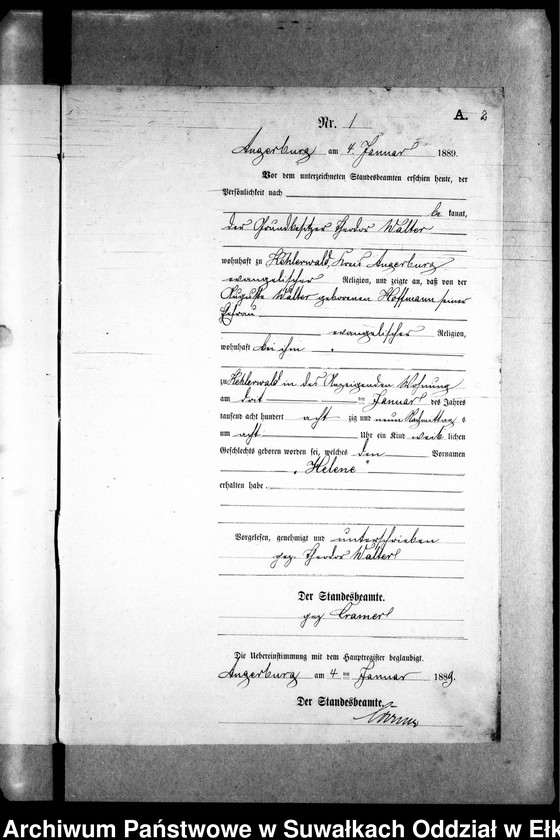 A. 2
Nr. 1
Angerburg am 4. Januar 1889.
Vor dem unterzeichneten Standesbeamten erschien heute, der
Persönlichkeit nach
be kannt,
der Grundbesitzer Theodor Walter
wohnhaft zu Kehlerwald, Kreis Angerburg
evangelischer Religion, und zeigte an, daß von der
Auguste Walter geborenen Hoffmann seiner
Ehefrau
evangelischer Religion,
wohnhaft bei ihm
zu Kehlerwald in des Anzeigenden Wohnung
am drit ten Januar des Jahres
tausend acht hundert acht zig und neun Nachmittags
um acht Uhr ein Kind weib lichen
Geschlechts geboren worden sei, welches den Vornamen
„Helene“
erhalten habe.
Vorgelesen, genehmigt und unterschrieben
gez. Theodor Walter
Der Standesbeamte.
gez. Cramer
Die Uebereinstimmung mit dem Hauptregister beglaubigt.
Angerburg am 4 ten Januar 1889.
Der Standesbeamte.
Archiwum Państwowe w Suwałkach Oddział w Ełk